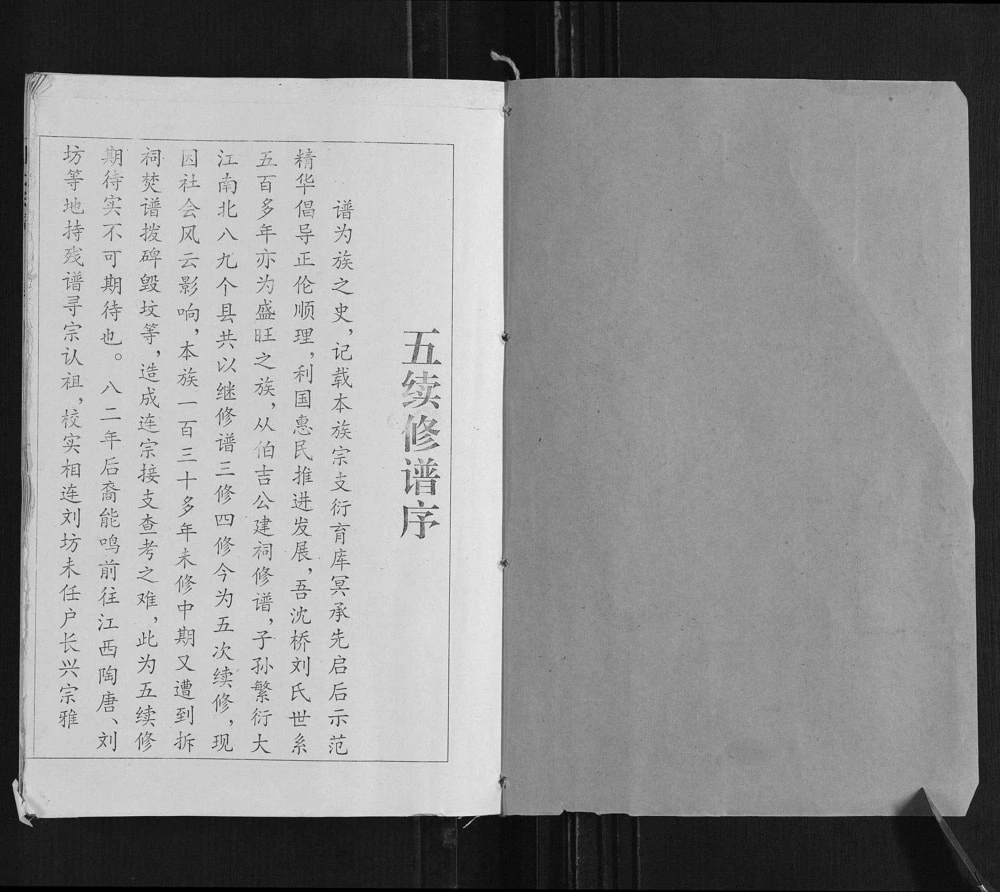 五续修谱序
谱为族之史，记载本族宗支衍育库冥承先启后示范
精华倡导正伦顺理，利国惠民推进发展，吾沈桥刘氏世系
五百多年亦为盛旺之族，从伯吉公建祠修谱，子孙繁衍大
江南北八九个县共以继修谱三修四修今为五次续修，现
因社会风云影响，本族一百三十多年未修中期又遭到拆
祠焚谱拨碑毁坟等，造成连宗接支查考之难，此为五续修
期待实不可期待也。八二年后裔能鸣前往江西陶唐、刘
坊等地持残谱寻宗认祖，校实相连刘坊未任户长兴宗雅